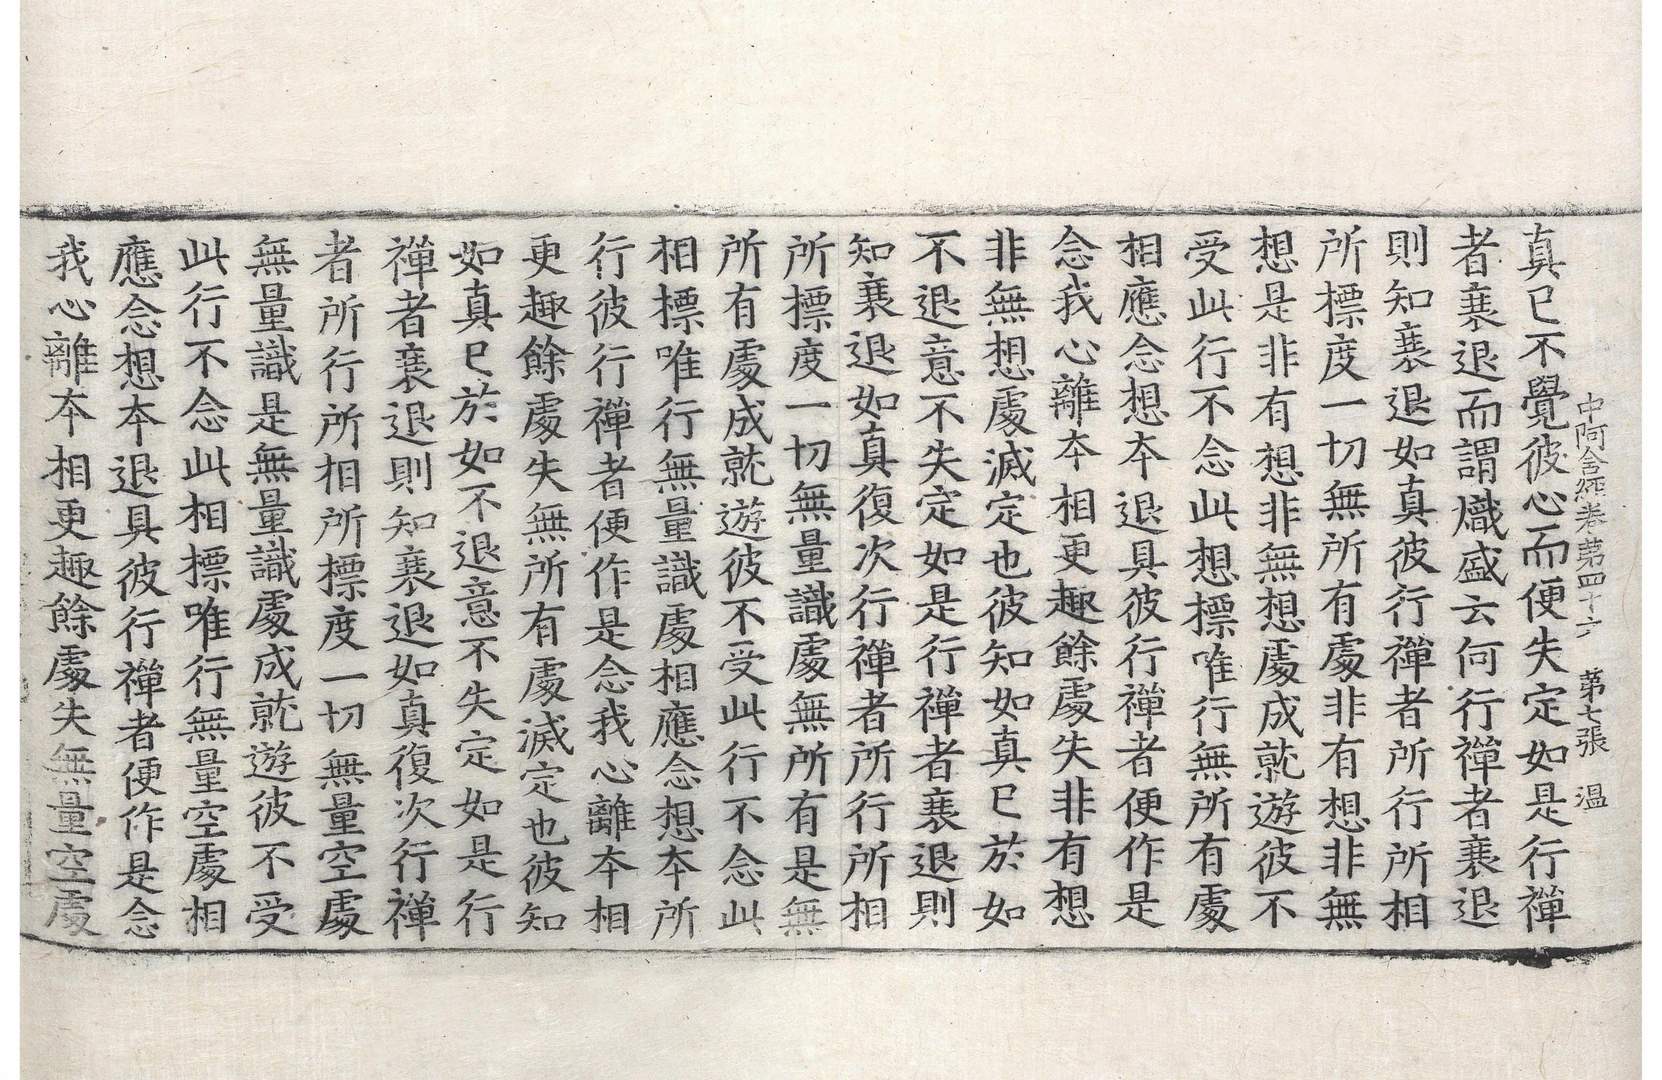 中阿含經卷第四十六　第七張　溫
真已不覺彼心而便失定如是行禪
者衰退而謂熾盛云何行禪者衰退
則知衰退如真彼行禪者所行所相
所標度一切無所有處非有想非無
想是非有想非無想處成就遊彼不
受此行不念此想標唯行無所有處
相應念想本退具彼行禪者便作是
念我心離本相更趣餘處失非有想
非無想處滅定也彼知如真已於如
不退意不失定如是行禪者衰退則
知衰退如真復次行禪者所行所相
所標度一切無量識處無所有是無
所有處成就遊彼不受此行不念此
相標唯行無量識處相應念想本所
行彼行禪者便作是念我心離本相
更趣餘處失無所有處滅定也彼知
如真已於如不退意不失定如是行
禪者衰退則知衰退如真復次行禪
者所行所相所標度一切無量空處
無量識是無量識處成就遊彼不受
此行不念此相標唯行無量空處相
應念想本退具彼行禪者便作是念
我心離本相更趣餘處失無量空處